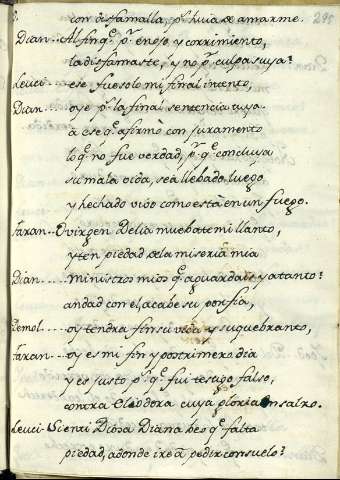 con disfamalla, pª huia de amarme. 295
Dian.. Al fin qᵉ pʳ enojo y corrimiento,
la disfamaste, y no pʳ culpa suya?
Leuci.. ese fue solo mi final intento,
Dian.. oye pˢ la final sentencia tuya.
a ese qᵉ afirmó con juramento
lo qᵉ no fue verdad, pʳ qᵉ concluya
su mala vida, sea llebado luego
y hechado vivo como está en un fuego.
Faran.. O virgen Delia muebate mi llanto,
y ten piedad de la miseria mia
Dian.. ministros mios qᵉ aguardais ya tanto?
andad con el, acabe su porfia,
Demol.. oy tendra fin su vida y su quebranto,
Faran.. oy es mi fin y postrimero dia
y es justo pˢ qᵉ fui testigo falso,
contra Cleodora cuya gloria ensalzo.
Leuci.. Si en ti Diosa Diana beo qᵉ falta
piedad, adonde ire a pedir consuelo?